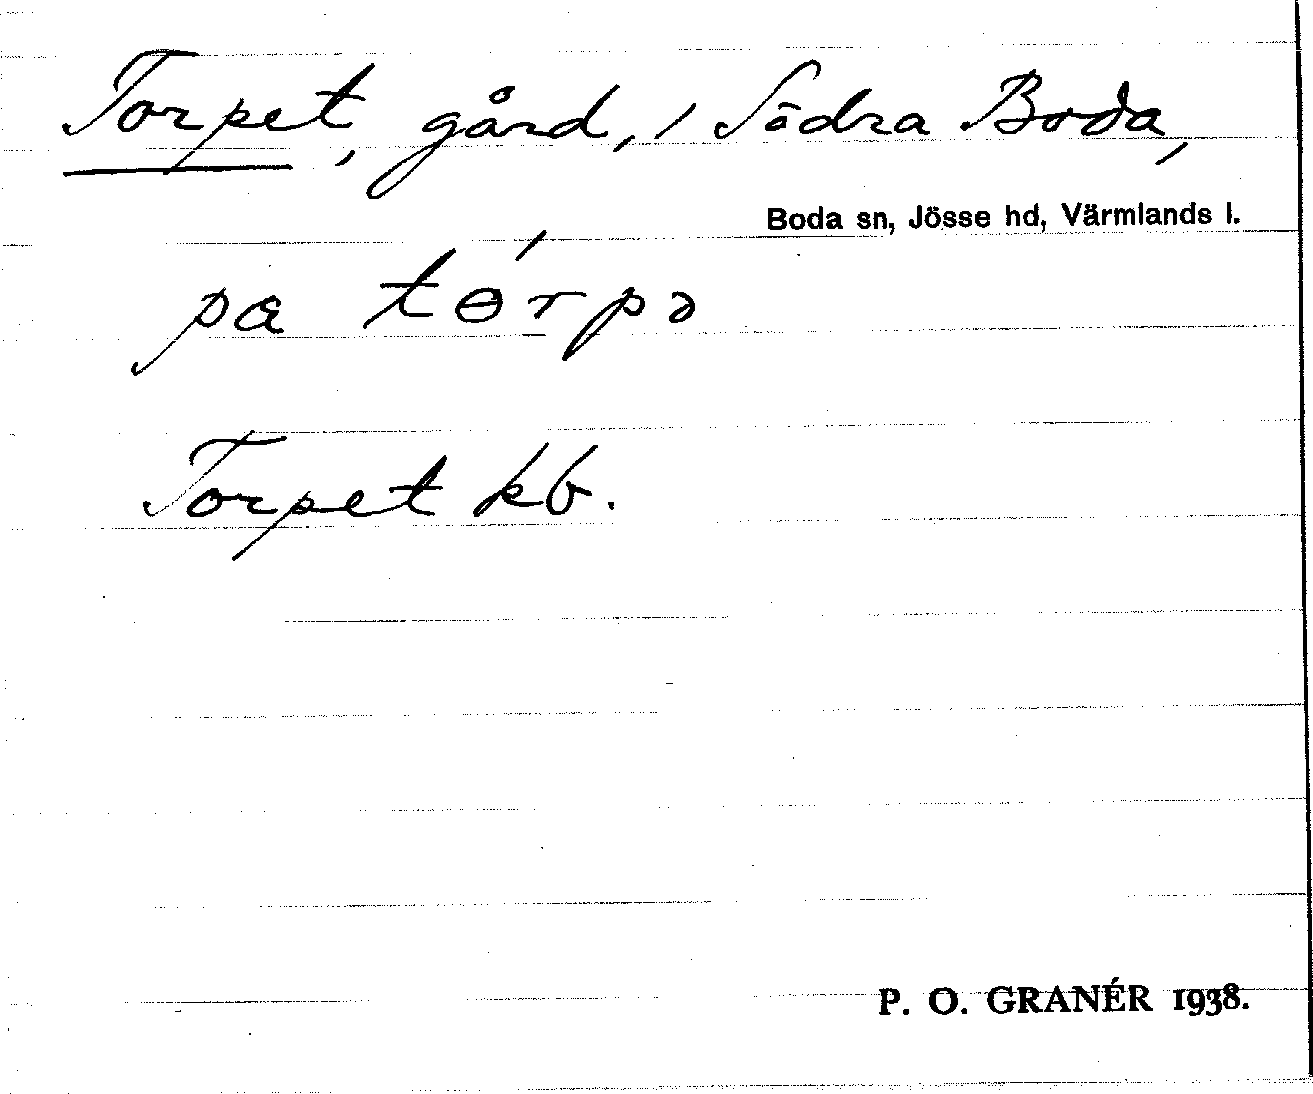 Torpet, gård, i Södra Boda,
Boda sn, Jösse hd, Värmlands l.
pa tɵ́rpə
Torpet kb.
P. O. GRANÉR 1938.